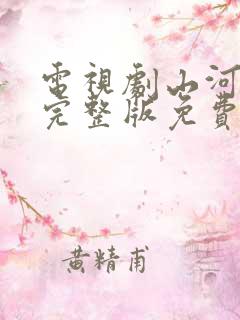 電視劇山河
完整版免費
黄精甫